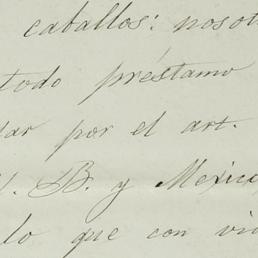 caballos: nosot
todo préstamo
dar por el art.
B. y Mexico
lo que con vi